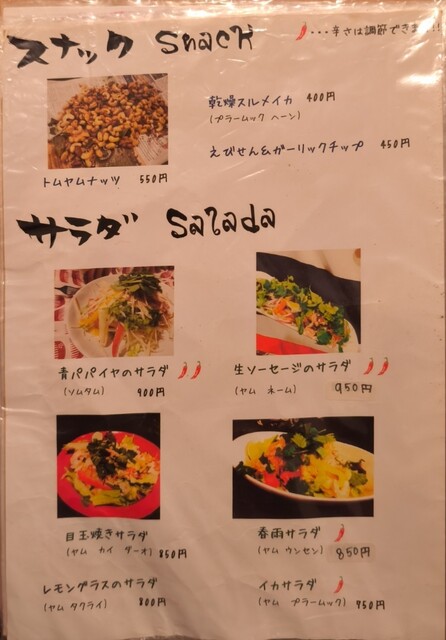 スナック Snack
・・・辛さは調節できます!!
乾燥スルメイカ 400円
(プラームック ヘーン)
えびせん&ガーリックチップ 450円
トムヤムナッツ 550円
サラダ Salada
青パパイヤのサラダ
(ソムタム) 900円
生ソーセージのサラダ
(ヤム ネーム) 950円
目玉焼きサラダ
(ヤム カイ ダーオ) 850円
春雨サラダ
(ヤム ウンセン) 850円
レモングラスのサラダ
(ヤム タクライ) 800円
イカサラダ
(ヤム プラームック) 750円